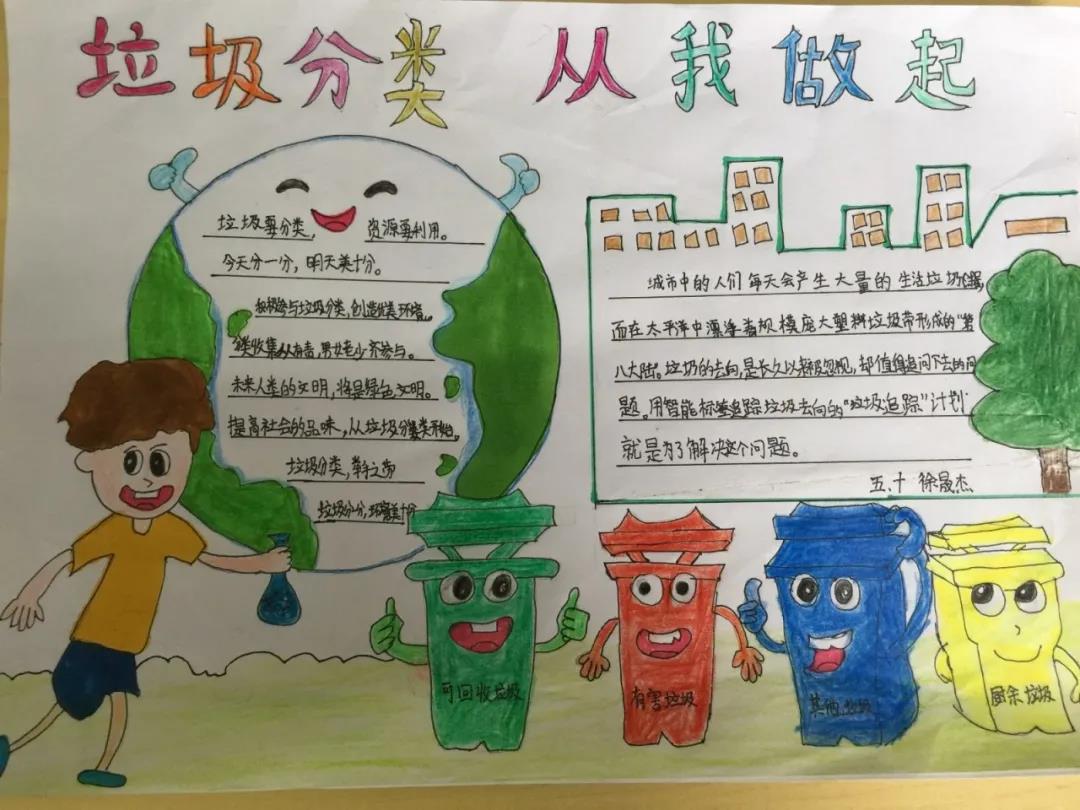 垃圾分类 从我做起
垃圾要分类, 资源要利用。
今天分一分,明天美十分。
积极参与垃圾分类,创造优美环境。
分类收集从有害,男女老少齐参与。
未来人类的文明,将是绿色文明。
提高社会的品味,从垃圾分类开始。
垃圾分类,举手之劳
垃圾分一分,环境美十分
城市中的人们每天会产生大量的生活垃圾
而在太平洋中漂浮着规模庞大塑料垃圾带形成的“第
八大陆。垃圾的去向,是长久以来被忽视,却值得追问下去的问
题。用智能标签追踪垃圾去向的“垃圾追踪”计划
就是为了解决这个问题。
五.十 徐晟杰
可回收垃圾
有害垃圾
其他垃圾
厨余垃圾